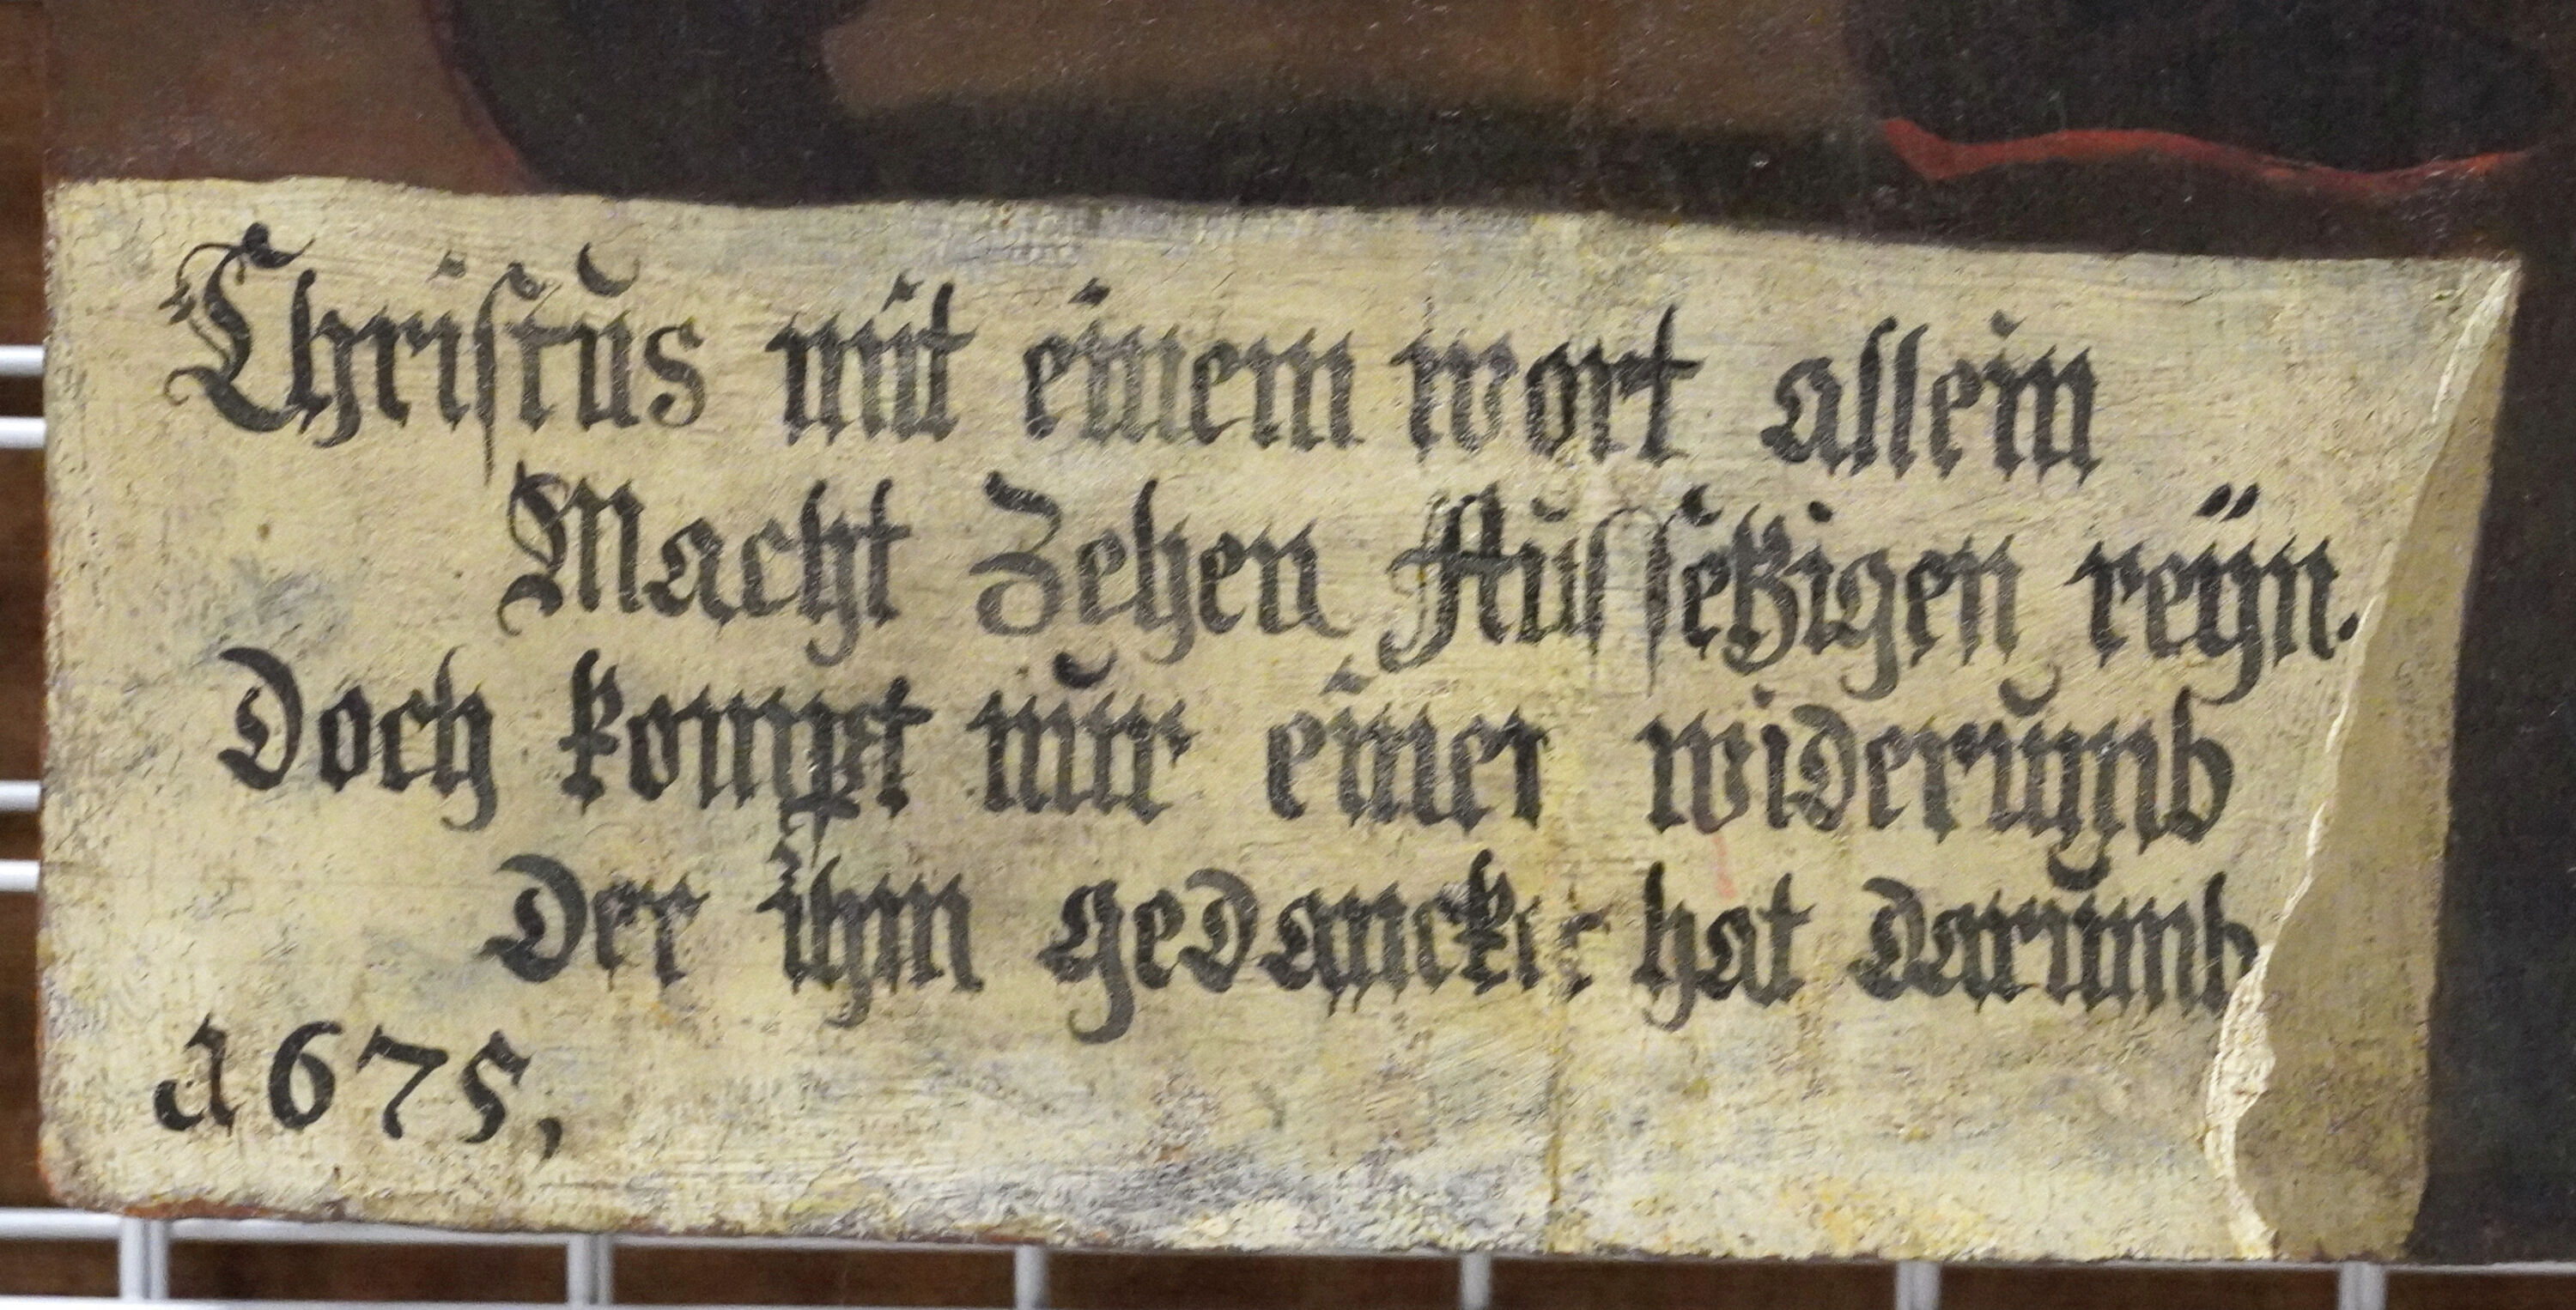 Christŭs mit einem wort allein
Macht Zehen Aŭssetzigen reÿn.
Doch kompt nŭr einer widerŭmb
Der ihm gedancket hat darŭmb
1675,